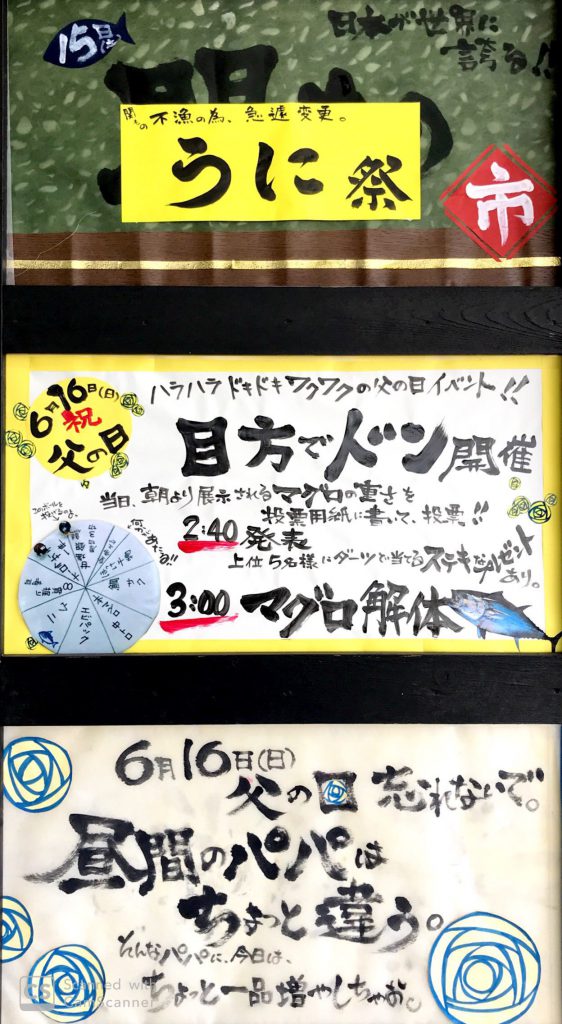 15日は
日本が世界に
誇る!!
関もの不漁の為、急遽変更。
うに祭
市
6月16日(日)
祝
父の日
ハラハラドキドキワクワクの父の日イベント!!
目方でドン開催
当日、朝より展示されるマグロの重さを
投票用紙に書いて、投票!!
2:40発表
上位5名様にダーツで当るステキなプレゼントあり。
3:00マグロ解体
6月16日(日)
父の日忘れないで。
昼間のパパは
ちょっと違う。
そんなパパに、今日は、
ちょっと一品増やしちゃお。
CS Scanned with
CamScanner